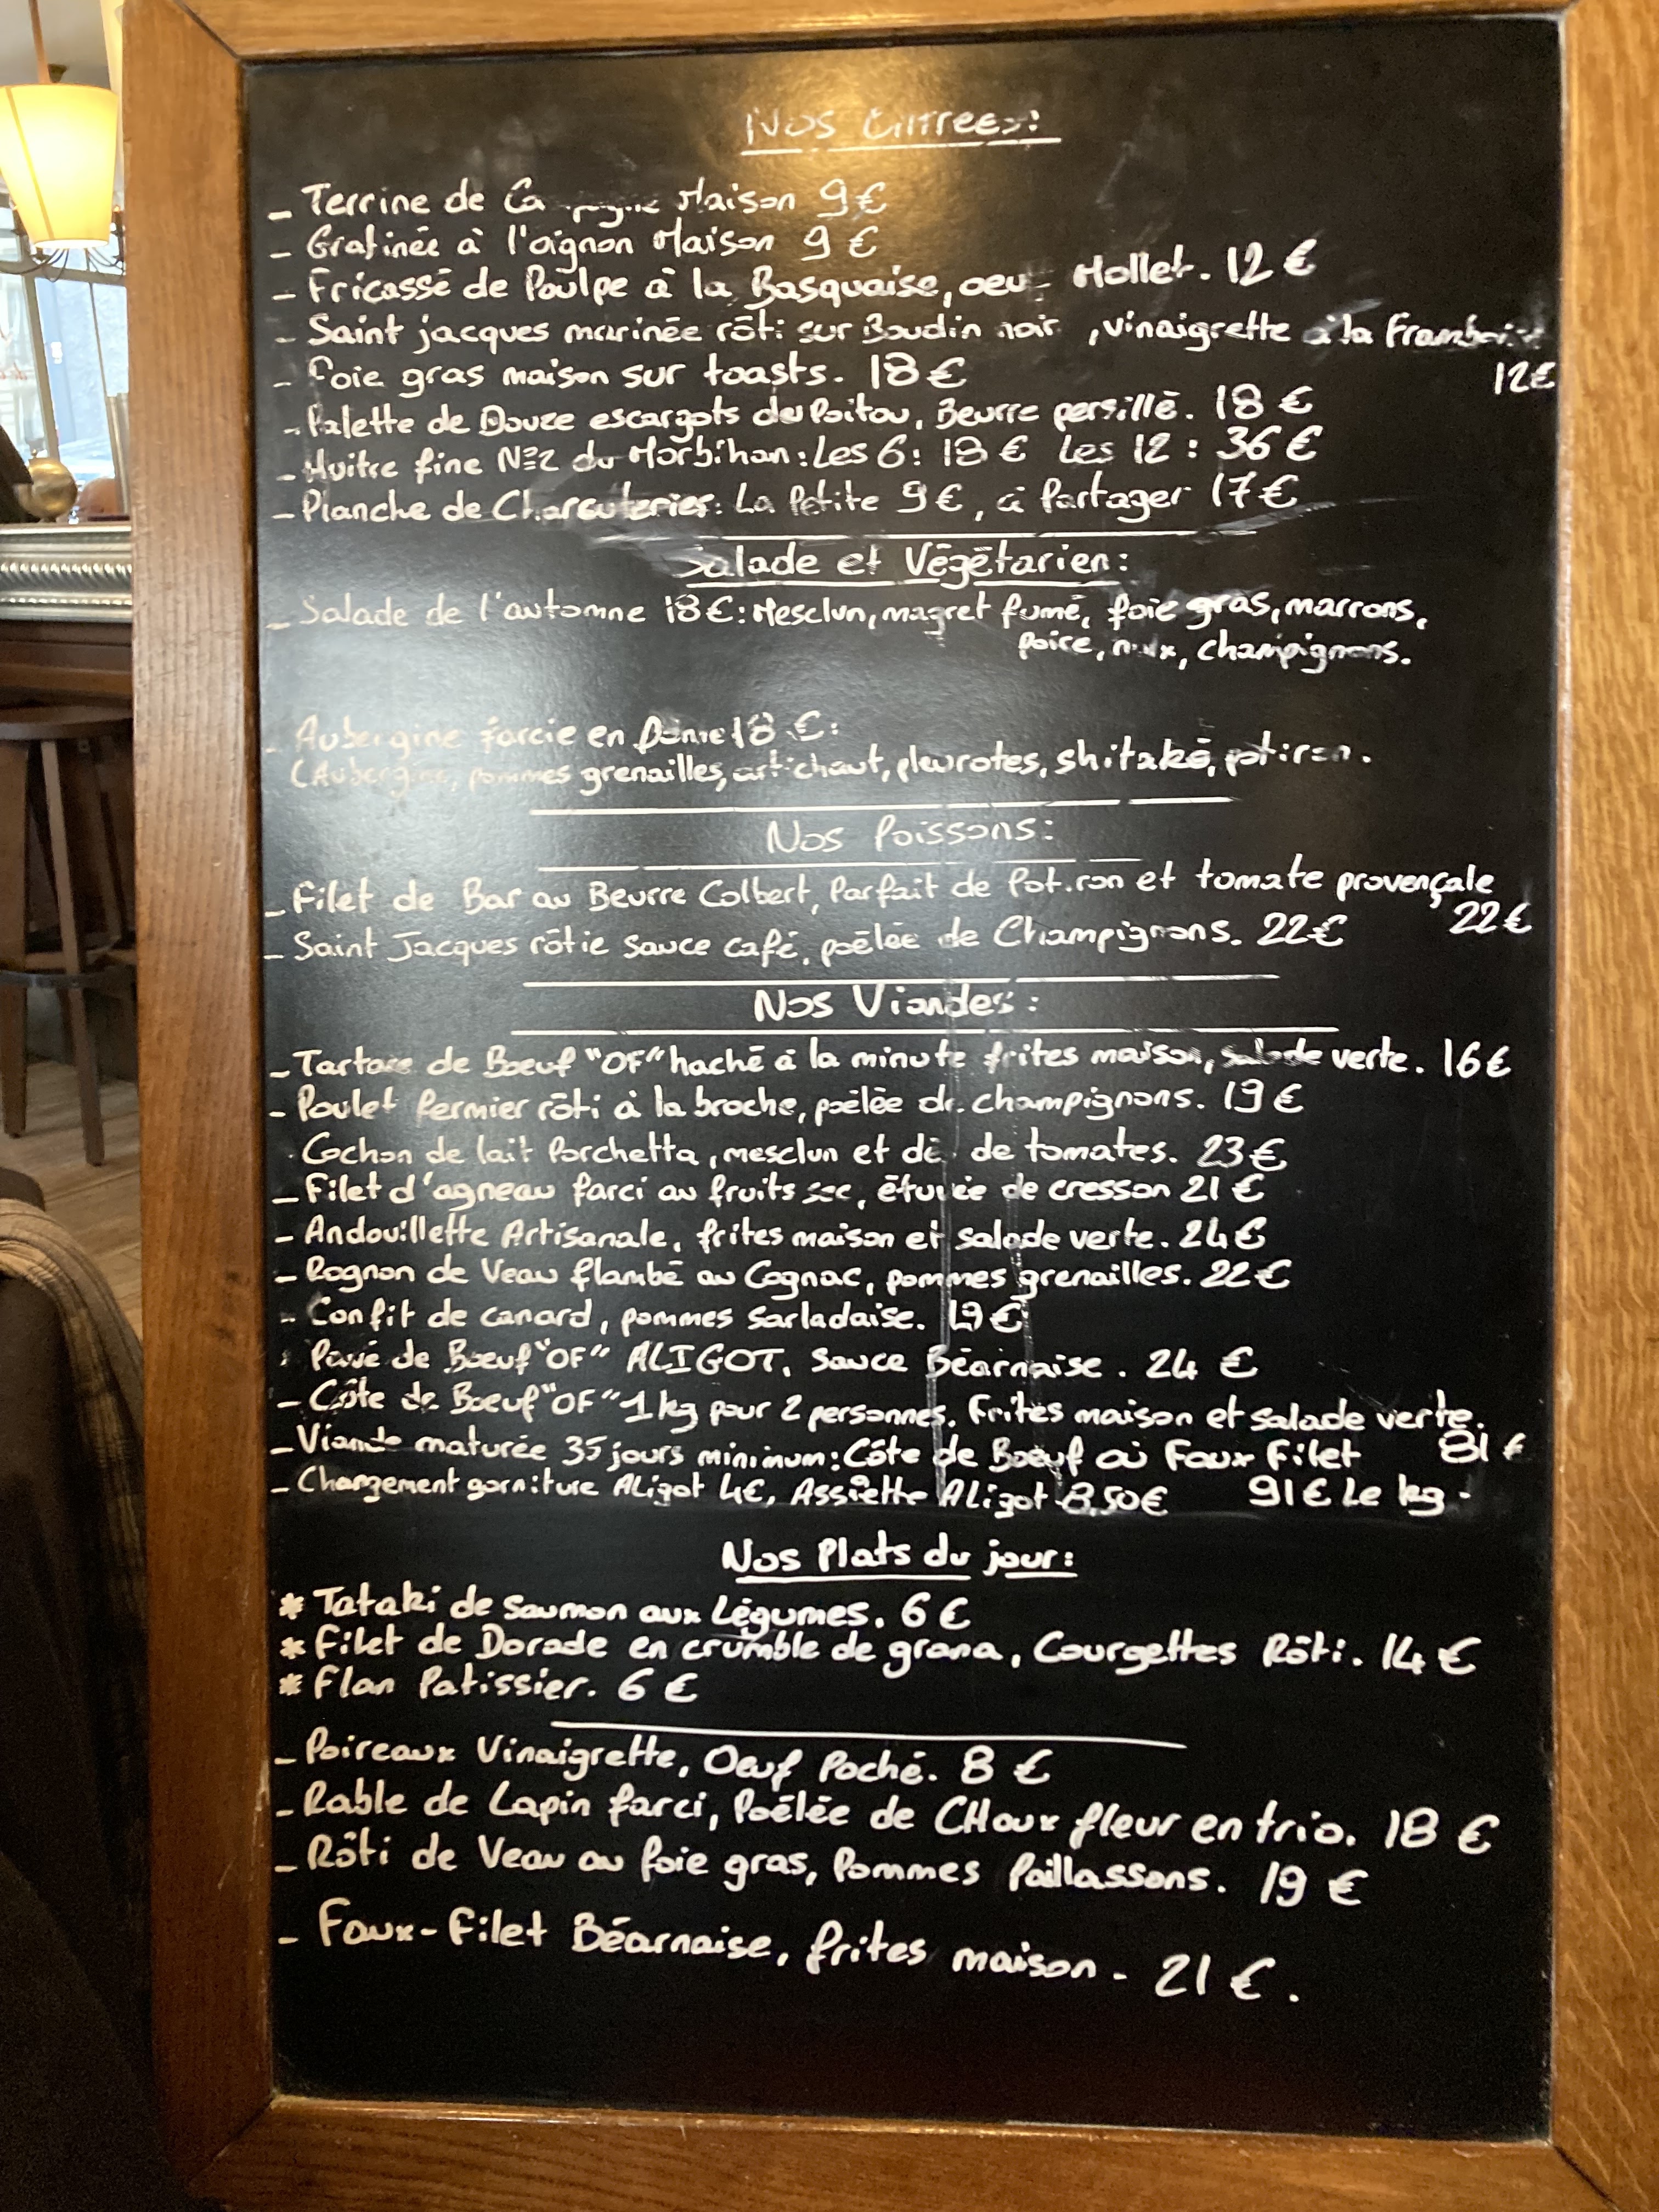 Nos Entrees:
_ Terrine de Maison 9€
_ Gratinée à l'oignon Maison 9 €
_ Fricassé de Poulpe à la Basquaise, oeu Mollet. 12 €
_ Saint jacques marinée rôti sur Boudin noir , vinaigrette à la
12€
_ Foie gras maison sur toasts. 18 €
_ Palette de Douze escargots du Poitou, Beurre persillé. 18 €
_ Huitre fine N°2 du Morbihan: Les 6: 18 € Les 12 : 36 €
_ Planche de Charcuteries: La Petite 9 €, à Partager 17 €
Salade et Végétarien:
_ Salade de l'automne 18€: Mesclun, magret fumé, foie gras, marrons,
poire, noix, champignons.
_ Aubergine farcie en 18 €:
(Aubergine, pommes grenailles, artichaut, pleurotes, shitaké, potiron.
Nos Poissons:
_ Filet de Bar au Beurre Colbert, Parfait de Potiron et tomate provençale
22€
_ Saint Jacques rôtie sauce café, poêlée de Champignons. 22€
Nos Viandes:
_ Tartare de Boeuf "OF" haché à la minute frites maison, salade verte. 16€
_ Poulet Fermier rôti à la broche, poêlée de champignons. 19 €
. Cochon de lait Porchetta, mesclun et dé de tomates. 23€
_ Filet d'agneau farci au fruits sec, étuvée de cresson 21 €
_ Andouillette Artisanale, frites maison et salade verte. 24€
_ Rognon de Veau flambé au Cognac, pommes grenailles. 22 €
- Confit de canard, pommes sarladaise. 19 €
- Pavé de Boeuf "OF" ALIGOT, Sauce Béarnaise. 24 €
_ Côte de Boeuf "OF" 1kg pour 2 personnes, Frites maison et salade verte.
81 €
_ Viande maturée 35 jours minimum: Côte de Boeuf où Faux Filet
91€ Le kg.
_ Changement garniture Aligot 4€, Assiette Aligot 8,50€
Nos Plats du jour:
* Tataki de Saumon aux Légumes. 6 €
* Filet de Dorade en crumble de grana, Courgettes Rôti. 14 €
* Flan Patissier. 6 €
_ Poireaux Vinaigrette, Oeuf Poché. 8 €
_ Rable de Lapin farci, Poêlée de CHoux fleur en trio. 18 €
_ Rôti de Veau au foie gras, Pommes Paillassons. 19 €
_ Faux-Filet Béarnaise, frites maison - 21 €.